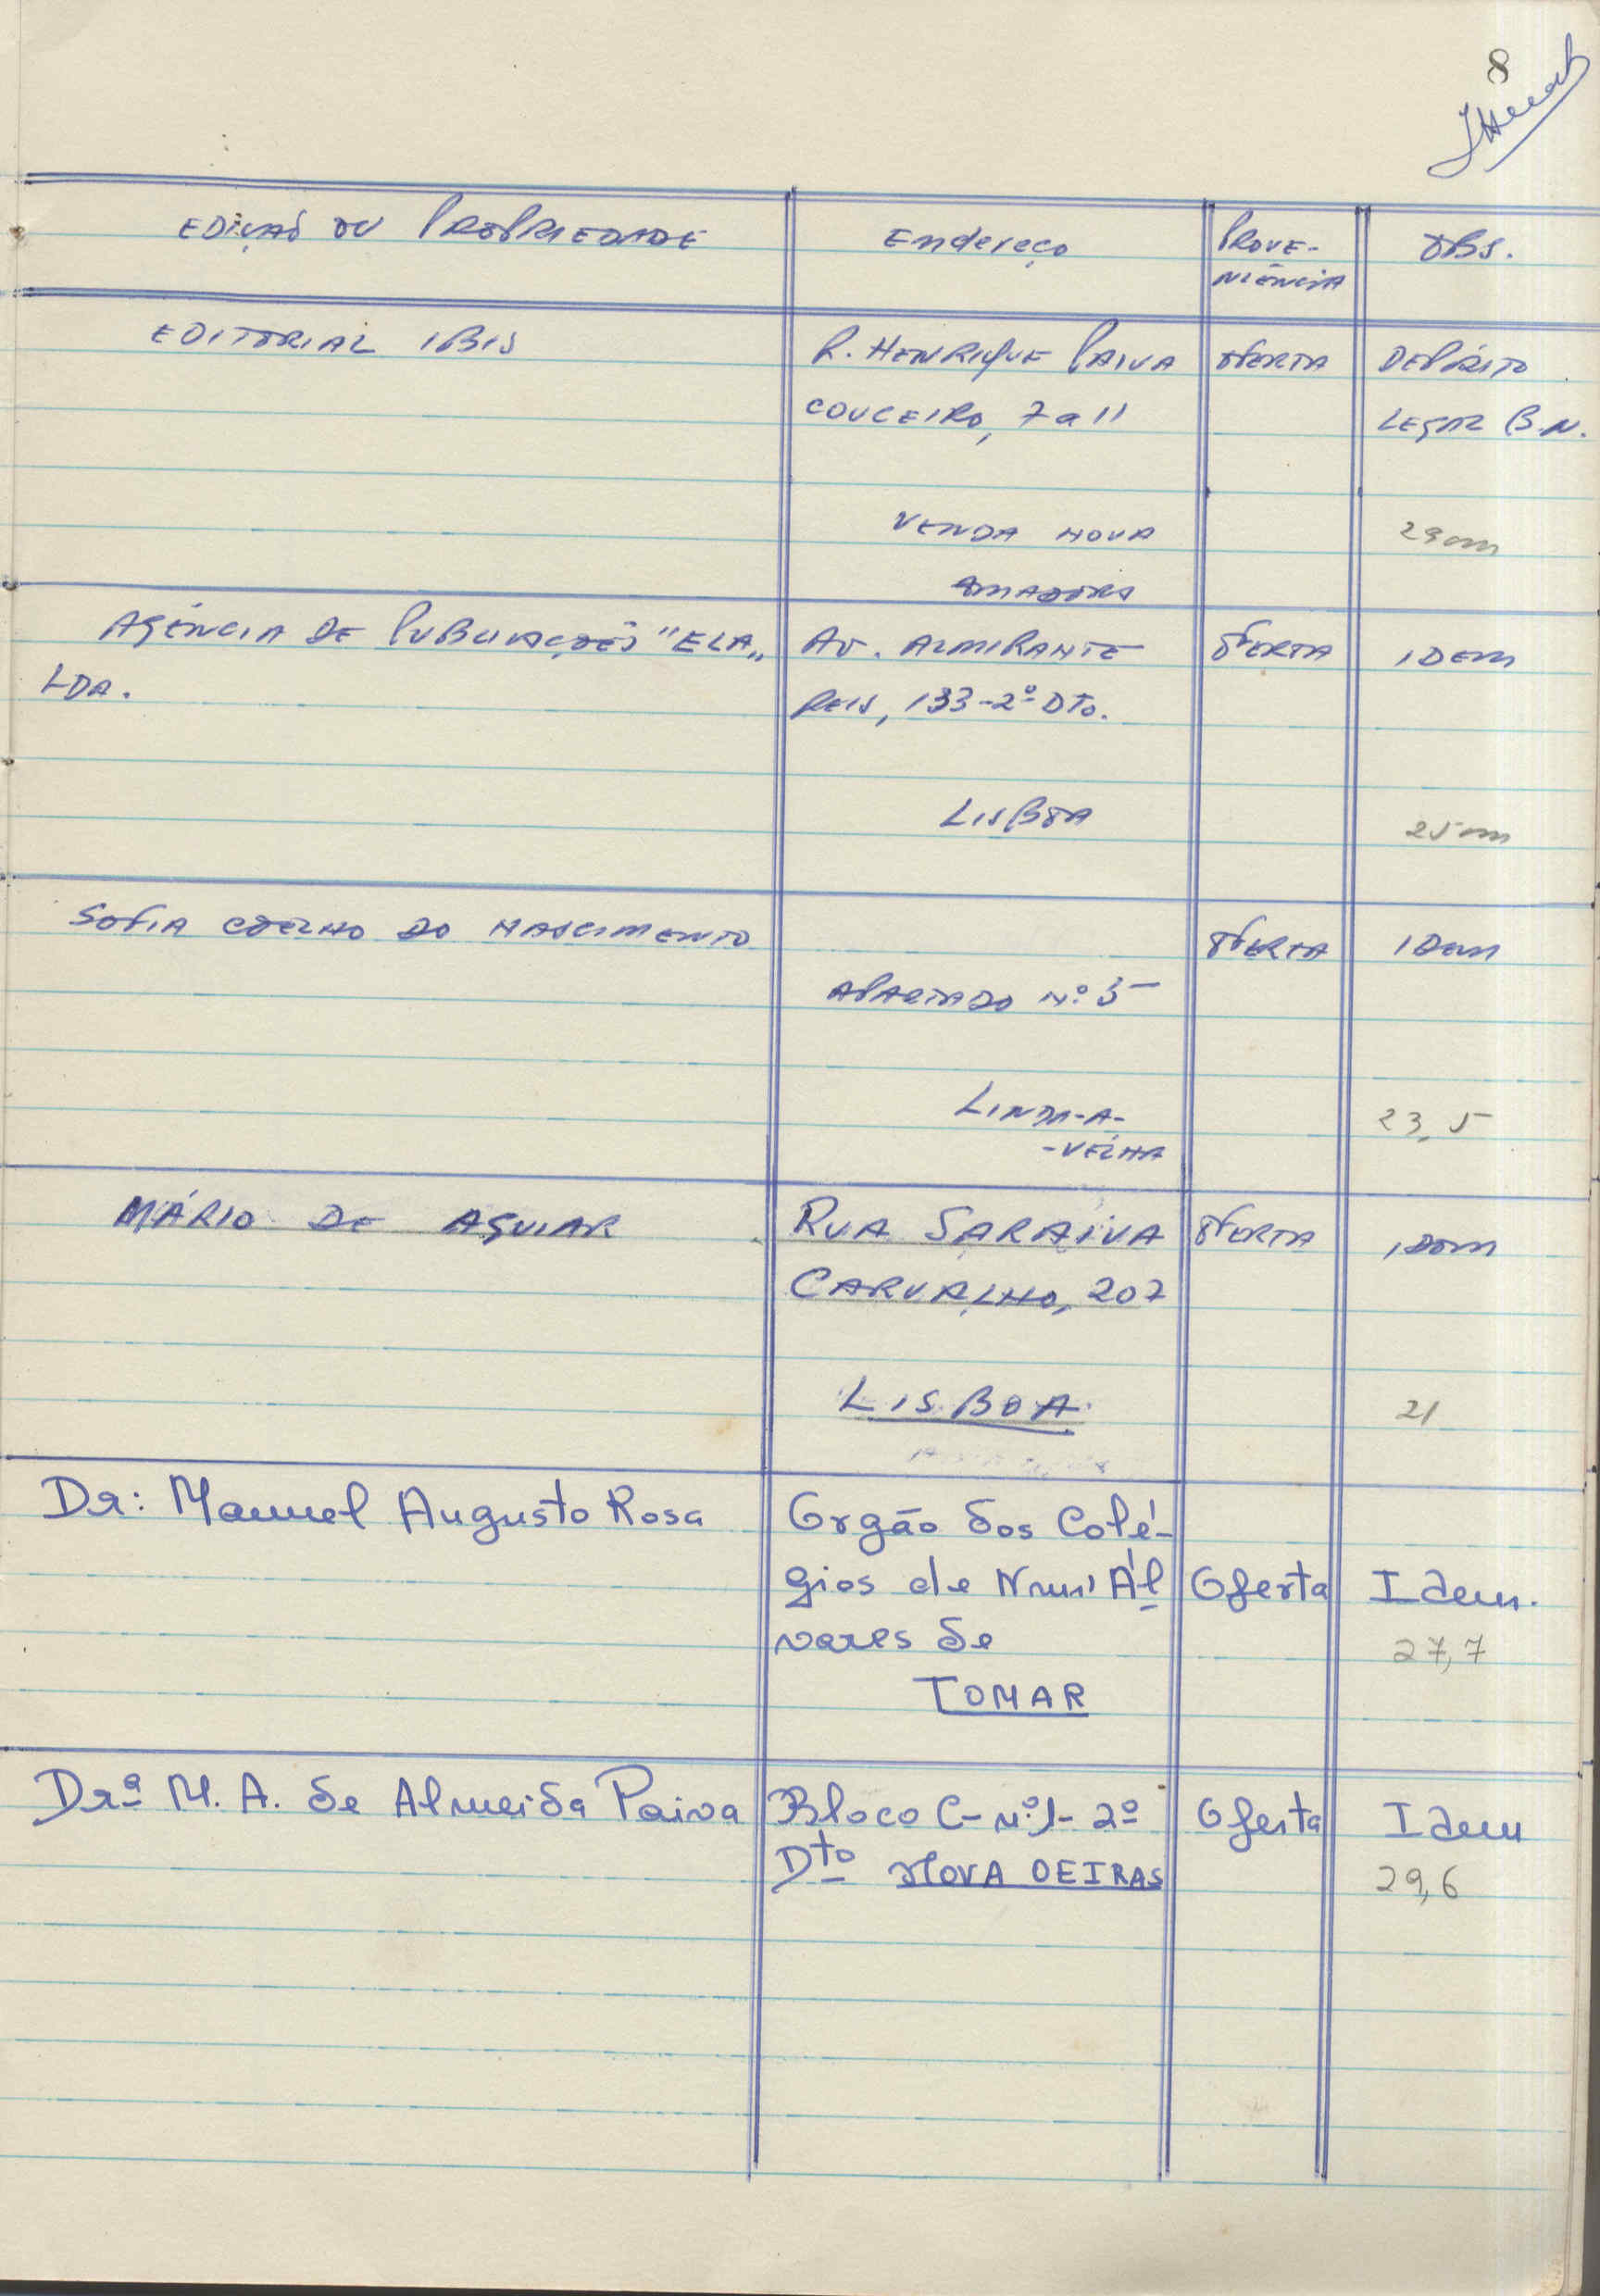 8
EDIÇÃO OU PROPRIEDADE
Endereço
PROVE-
NIÊNCIA
OBS.
EDITORIAL IBIS
R. HENRIQUE PAIVA
COUCEIRO, 7 a 11
VENDA NOVA
AMADORA
OFERTA
DEPÓSITO
LEGAL B.N.
29 cm
AGÊNCIA DE PUBLICAÇÕES "ELA,,
LDA.
AV. ALMIRANTE
REIS, 133-2º DTO.
LISBOA
OFERTA
IDEM
25 cm
SOFIA COELHO DO NASCIMENTO
APARTADO Nº 5
LINDA-A-
-VELHA
OFERTA
IDEM
23,5
MÁRIO DE AGUIAR
RUA SARAIVA
CARVALHO, 207
LISBOA
OFERTA
IDEM
21
Dr: Manuel Augusto Rosa
Orgão dos Colé-
gios de Nun' Ál
vares de
TOMAR
Oferta
Idem.
27,7
Drª M. A. de Almeida Paiva
Bloco C- nº1- 2º
Dto NOVA OEIRAS
Oferta
Idem
29,6